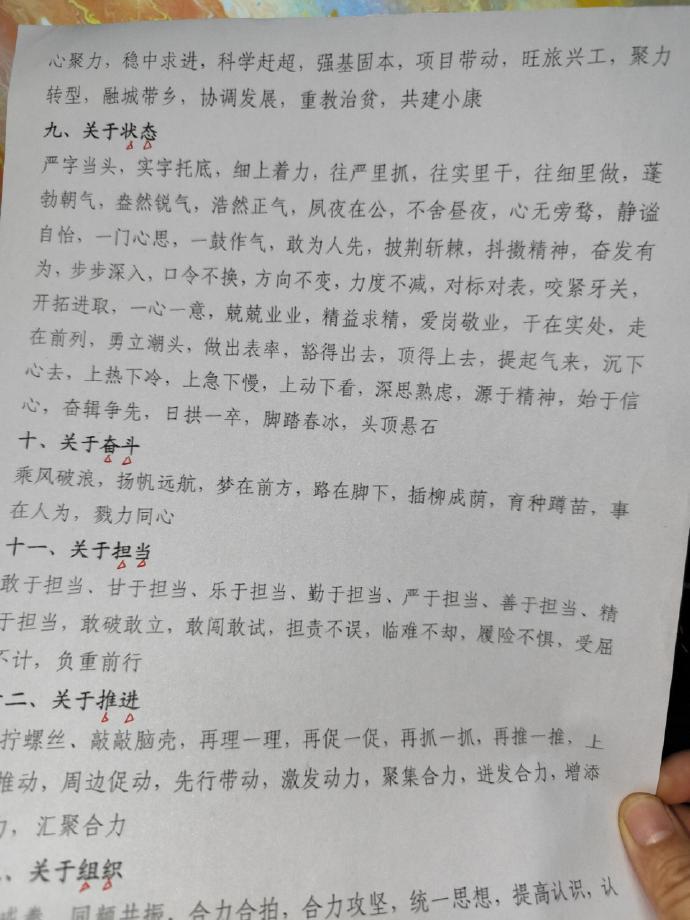 心聚力，稳中求进，科学赶超，强基固本，项目带动，旺旅兴工，聚力
转型，融城带乡，协调发展，重教治贫，共建小康
九、关于状态
严字当头，实字托底，细上着力，往严里抓，往实里干，往细里做，蓬
勃朝气，盎然锐气，浩然正气，夙夜在公，不舍昼夜，心无旁骛，静谧
自怡，一门心思，一鼓作气，敢为人先，披荆斩棘，抖擞精神，奋发有
为，步步深入，口令不换，方向不变，力度不减，对标对表，咬紧牙关，
开拓进取，一心一意，兢兢业业，精益求精，爱岗敬业，干在实处，走
在前列，勇立潮头，做出表率，豁得出去，顶得上去，提起气来，沉下
心去，上热下冷，上急下慢，上动下看，深思熟虑，源于精神，始于信
心，奋辑争先，日拱一卒，脚踏春冰，头顶悬石
十、关于奋斗
乘风破浪，扬帆远航，梦在前方，路在脚下，插柳成荫，育种蹲苗，事
在人为，戮力同心
十一、关于担当
敢于担当、甘于担当、乐于担当、勤于担当、严于担当、善于担当、精
于担当，敢破敢立，敢闯敢试，担责不误，临难不却，履险不惧，受屈
不计，负重前行
十二、关于推进
拧螺丝、敲敲脑壳，再理一理，再促一促，再抓一抓，再推一推，上
推动，周边促动，先行带动，激发动力，聚集合力，迸发合力，增添
力，汇聚合力
、关于组织
同频共振，合力合拍，合力攻坚，统一思想，提高认识，认